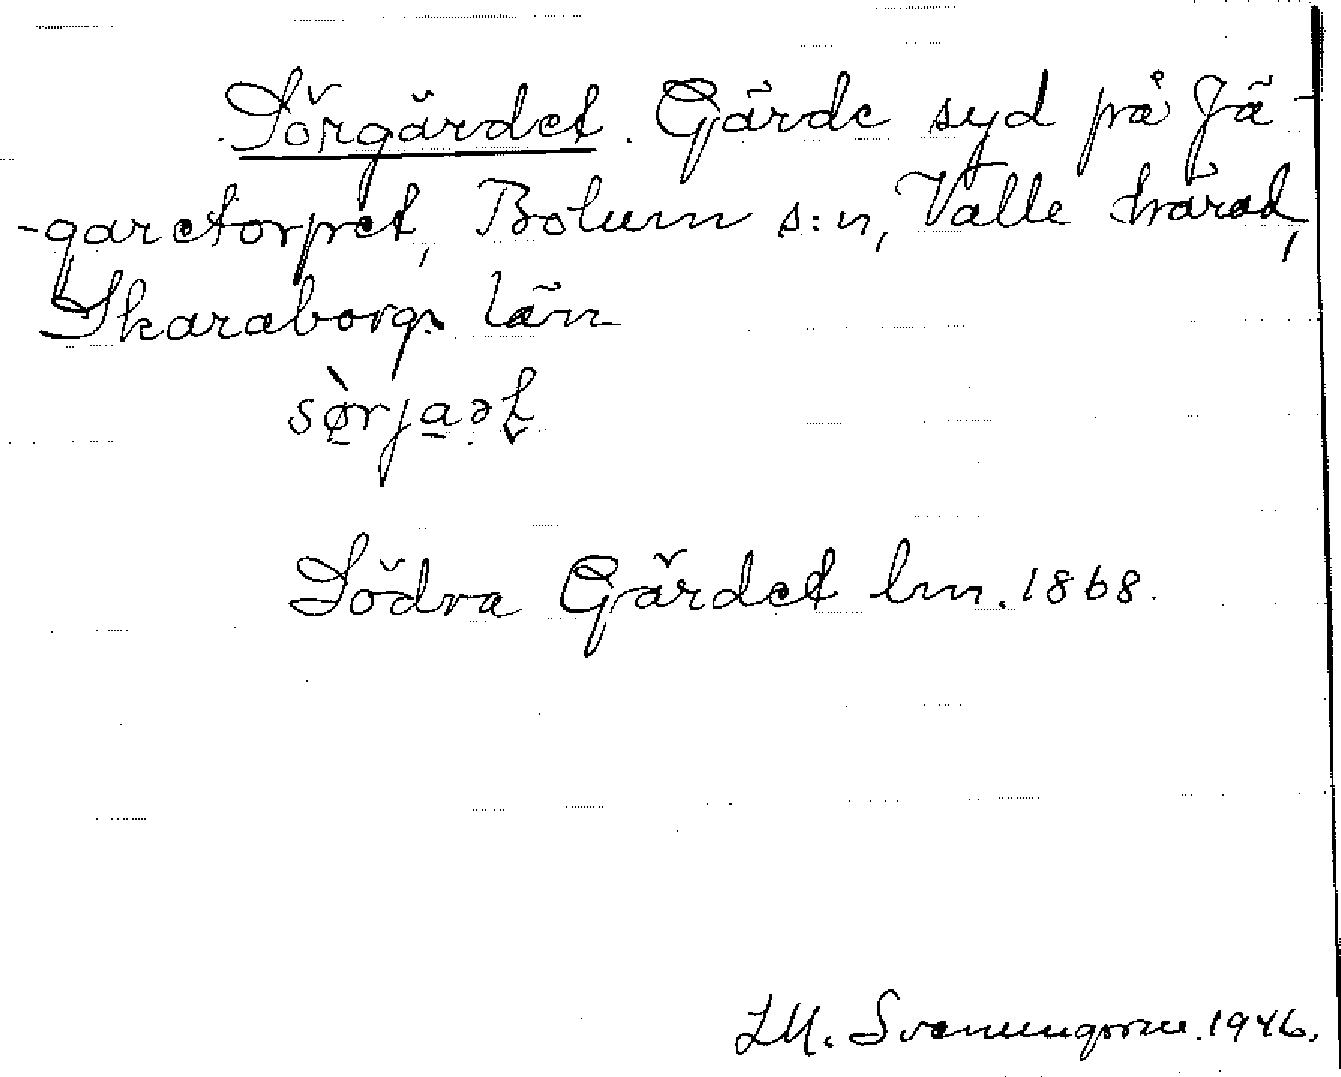 Sörgärdet. Gärde syd på Jä-
-garetorpet, Bolum s:n, Valle härad,
Skaraborgs län
Södra Gärdet lm. 1868.
L.M. Svenungsson. 1946.